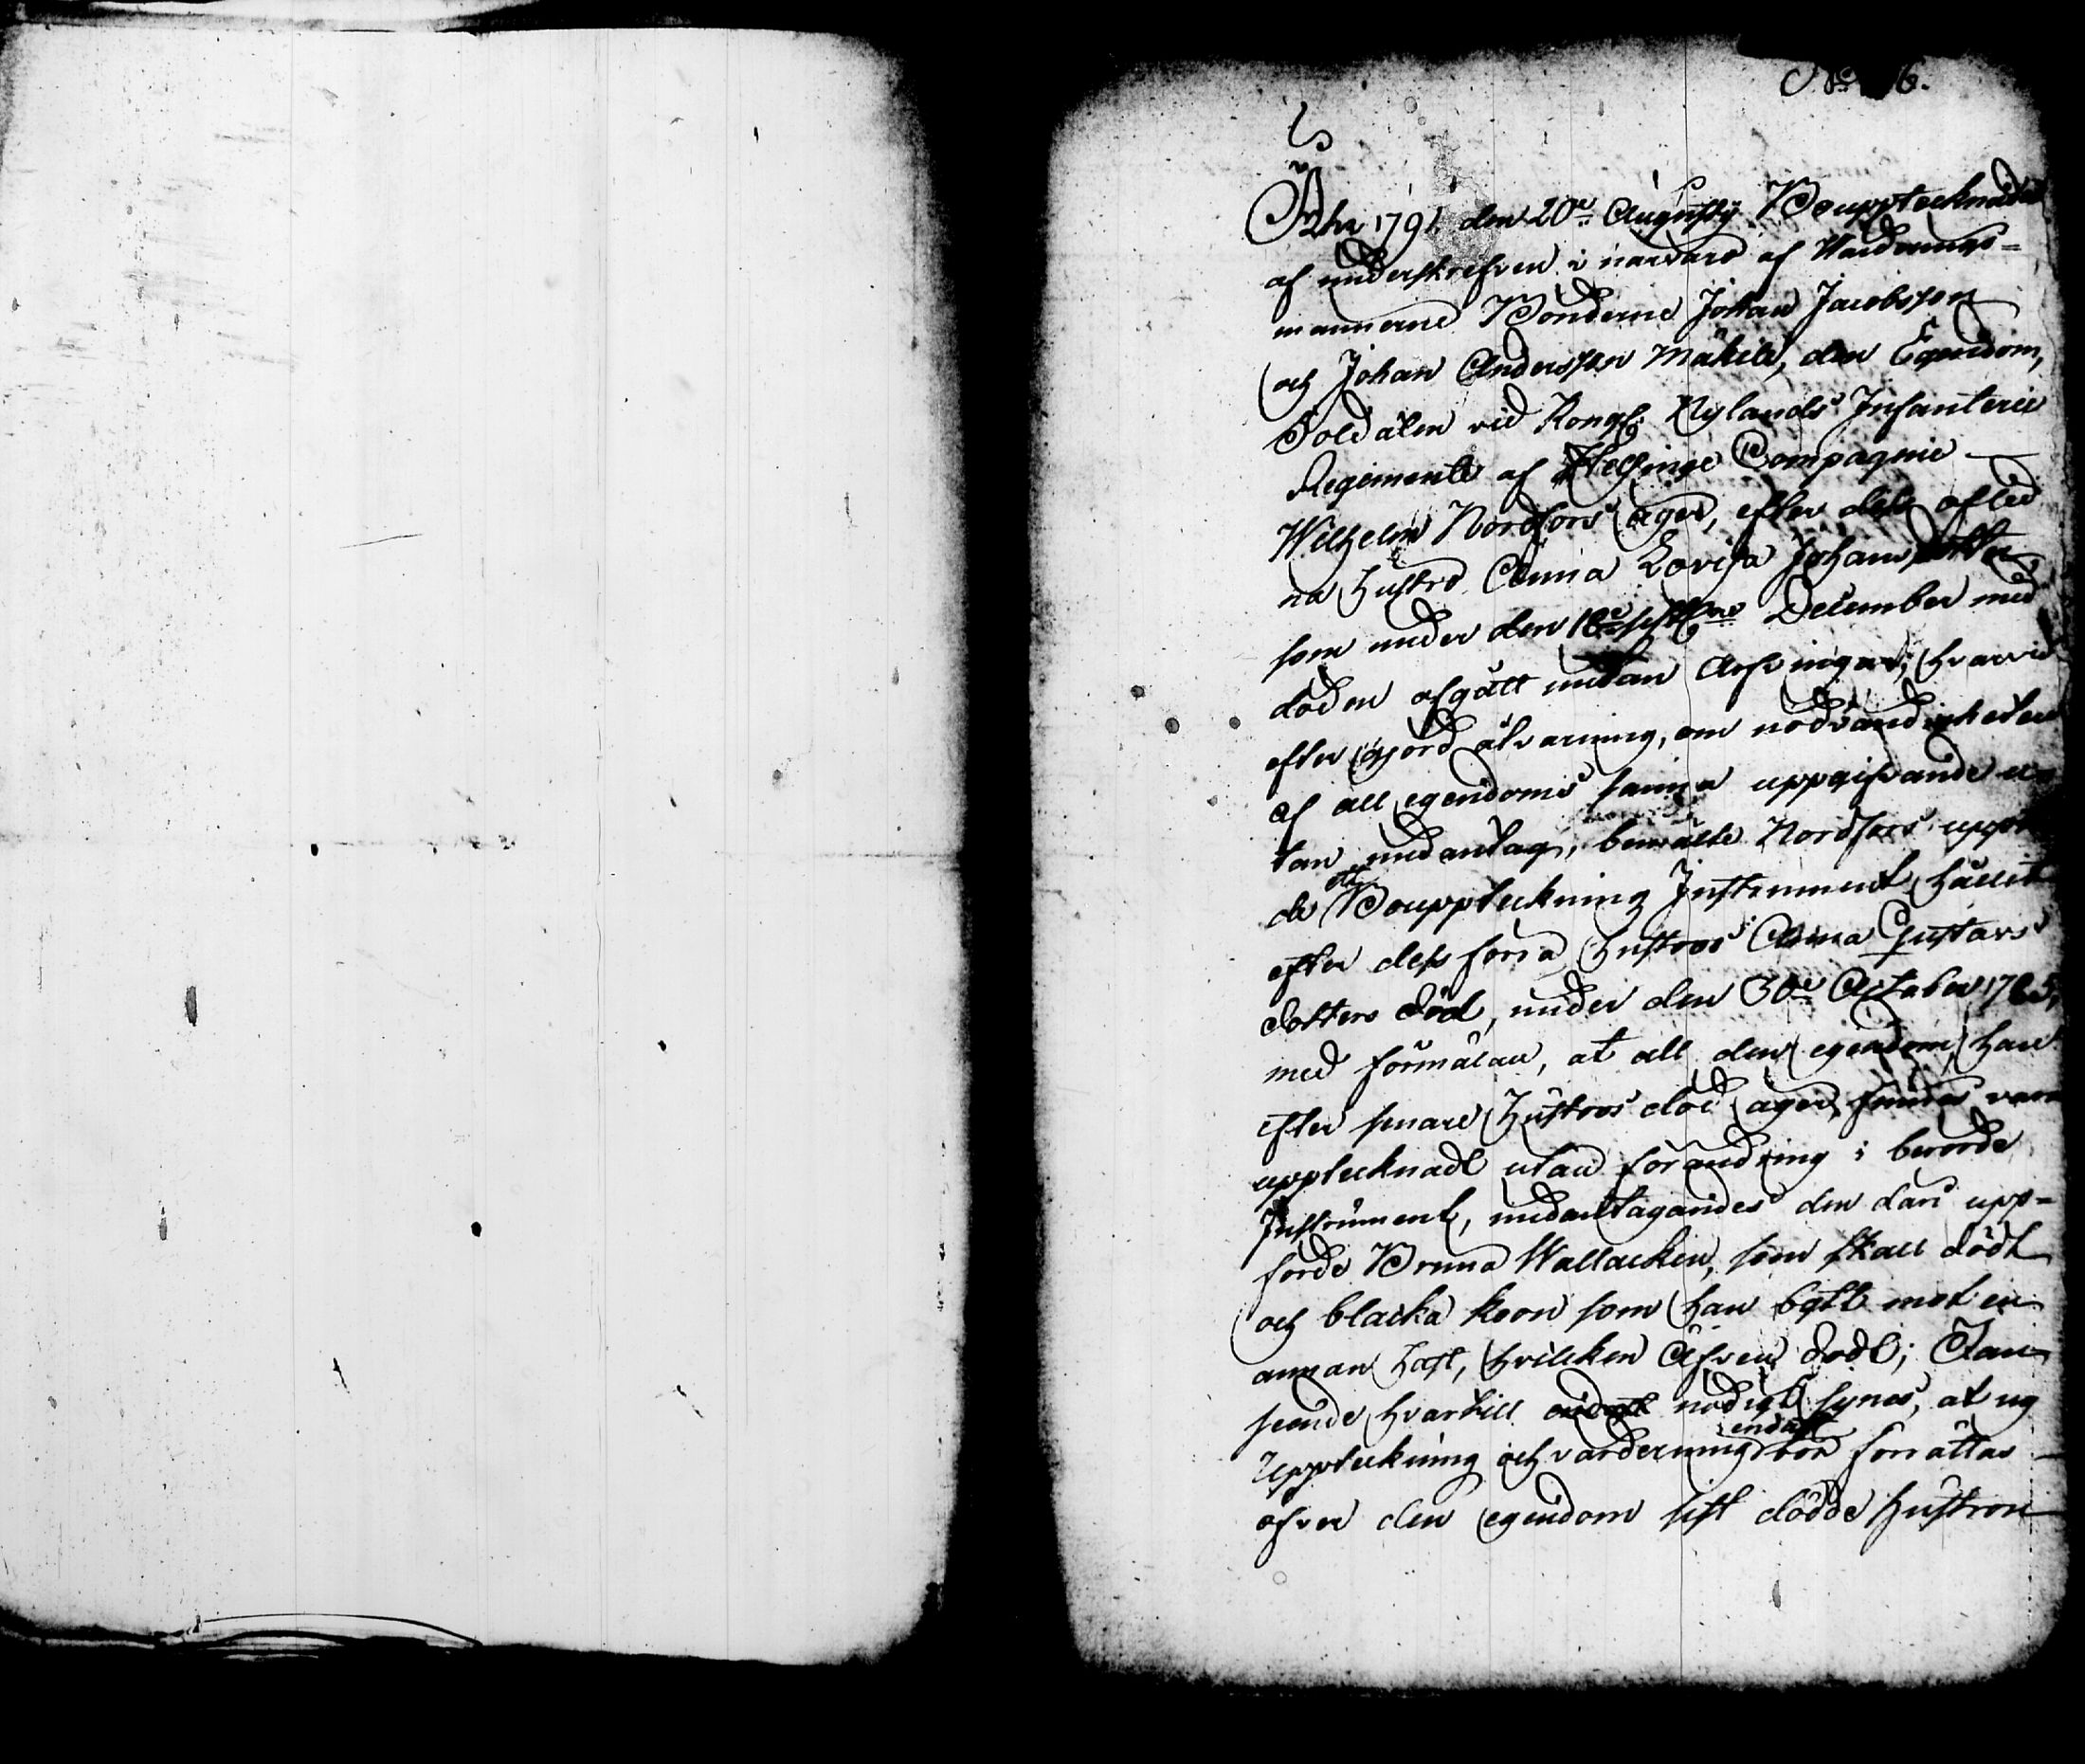 Åhr 1791 den 20de Augusty Bouptecknades
af underskrefven i närvaro af Wärderings-
männerne Bönderne Johan Jacobsson
och Johan Andersson Mäkilä, den Egendom,
Soldaten vid Kongl: Nylands Infanterie
Regemente af Helsinge Compagnie
Wilhelm Nordfors äger, efter dess aflid
na hustro Anna Lovisa Johansdotter
som under den 18de December med
döden afgått utan Arfvingar; hvarvid
efter gjord åtvarning, om nödvändigheten
af all egendoms sanna uppgifvande u-
tan undantag, bemälte Nordfors uppvi
de ett Bouppteckning Instrument hållit
efter dess förra hustros Anna Gustavs
dotters död, under den 30de October 1785,
med förmälan, at all den egendom han
efter senare hustros död äger, finnes vara
upptecknadt utan förändring i berörde
Instrument, undantagandes den däri upp-
förde Bruna Wallacken, som skall dödt
och blacka koon som han bytt mot en
annan häst, hvilken äfven dödt; I an
seende hvartill nödigt synes, at ny
Uppteckning och värdering endast bör förrättas
öfver den egendom sist dödde hustron